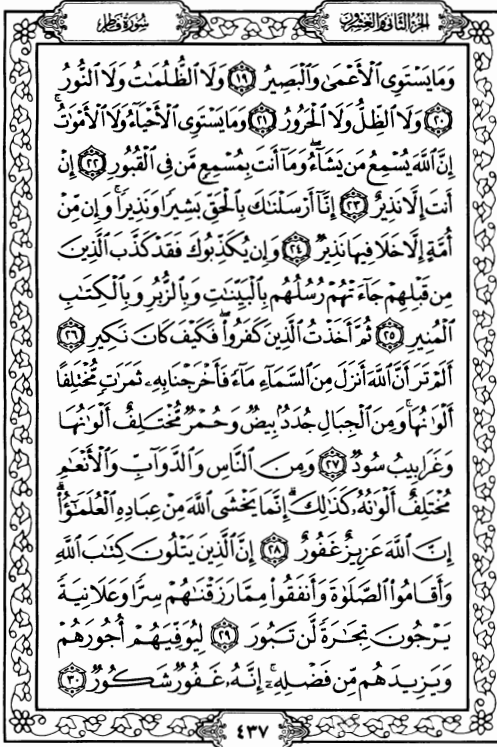 الجزء الثاني والعشرون
سورة فاطر
وَمَا يَسْتَوِى ٱلْأَعْمَىٰ وَٱلْبَصِيرُ ١٩ وَلَا ٱلظُّلُمَـٰتُ وَلَا ٱلنُّورُ
٢٠ وَلَا ٱلظِّلُّ وَلَا ٱلْحَرُورُ ٢١ وَمَا يَسْتَوِى ٱلْأَحْيَآءُ وَلَا ٱلْأَمْوَٰتُ ۚ
إِنَّ ٱللَّهَ يُسْمِعُ مَن يَشَآءُ ۖ وَمَآ أَنتَ بِمُسْمِعٍ مَّن فِى ٱلْقُبُورِ ٢٢ إِنْ
أَنتَ إِلَّا نَذِيرٌ ٢٣ إِنَّآ أَرْسَلْنَـٰكَ بِٱلْحَقِّ بَشِيرًا وَنَذِيرًا ۚ وَإِن مِّنْ
أُمَّةٍ إِلَّا خَلَا فِيهَا نَذِيرٌ ٢٤ وَإِن يُكَذِّبُوكَ فَقَدْ كَذَّبَ ٱلَّذِينَ
مِن قَبْلِهِمْ جَآءَتْهُمْ رُسُلُهُم بِٱلْبَيِّنَـٰتِ وَبِٱلزُّبُرِ وَبِٱلْكِتَـٰبِ
ٱلْمُنِيرِ ٢٥ ثُمَّ أَخَذْتُ ٱلَّذِينَ كَفَرُوا۟ ۖ فَكَيْفَ كَانَ نَكِيرِ ٢٦
أَلَمْ تَرَ أَنَّ ٱللَّهَ أَنزَلَ مِنَ ٱلسَّمَآءِ مَآءً فَأَخْرَجْنَا بِهِۦ ثَمَرَٰتٍ مُّخْتَلِفًا
أَلْوَٰنُهَا ۚ وَمِنَ ٱلْجِبَالِ جُدَدٌۢ بِيضٌ وَحُمْرٌ مُّخْتَلِفٌ أَلْوَٰنُهَا
وَغَرَابِيبُ سُودٌ ٢٧ وَمِنَ ٱلنَّاسِ وَٱلدَّوَآبِّ وَٱلْأَنْعَـٰمِ
مُخْتَلِفٌ أَلْوَٰنُهُۥ كَذَٰلِكَ ۗ إِنَّمَا يَخْشَى ٱللَّهَ مِنْ عِبَادِهِ ٱلْعُلَمَـٰٓؤُا۟ ۗ
إِنَّ ٱللَّهَ عَزِيزٌ غَفُورٌ ٢٨ إِنَّ ٱلَّذِينَ يَتْلُونَ كِتَـٰبَ ٱللَّهِ
وَأَقَامُوا۟ ٱلصَّلَوٰةَ وَأَنفَقُوا۟ مِمَّا رَزَقْنَـٰهُمْ سِرًّا وَعَلَانِيَةً
يَرْجُونَ تِجَـٰرَةً لَّن تَبُورَ ٢٩ لِيُوَفِّيَهُمْ أُجُورَهُمْ
وَيَزِيدَهُم مِّن فَضْلِهِۦٓ ۚ إِنَّهُۥ غَفُورٌ شَكُورٌ ٣٠
٤٣٧